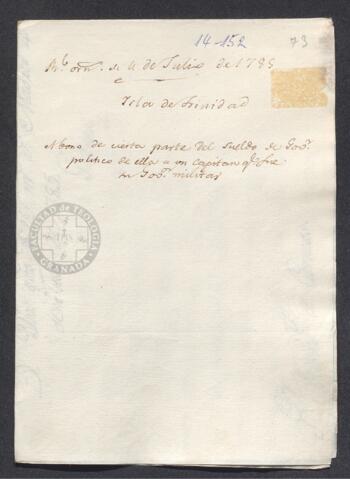 14-152
73
Rl. orn. de 4 de Julio de 1785
Isla de Trinidad
Abono de cierta parte del sueldo de Gobr.
politico de ella a un Capitan qe. fue
su Gobr. militar
FACULTAD de TEOLOGIA
GRANADA